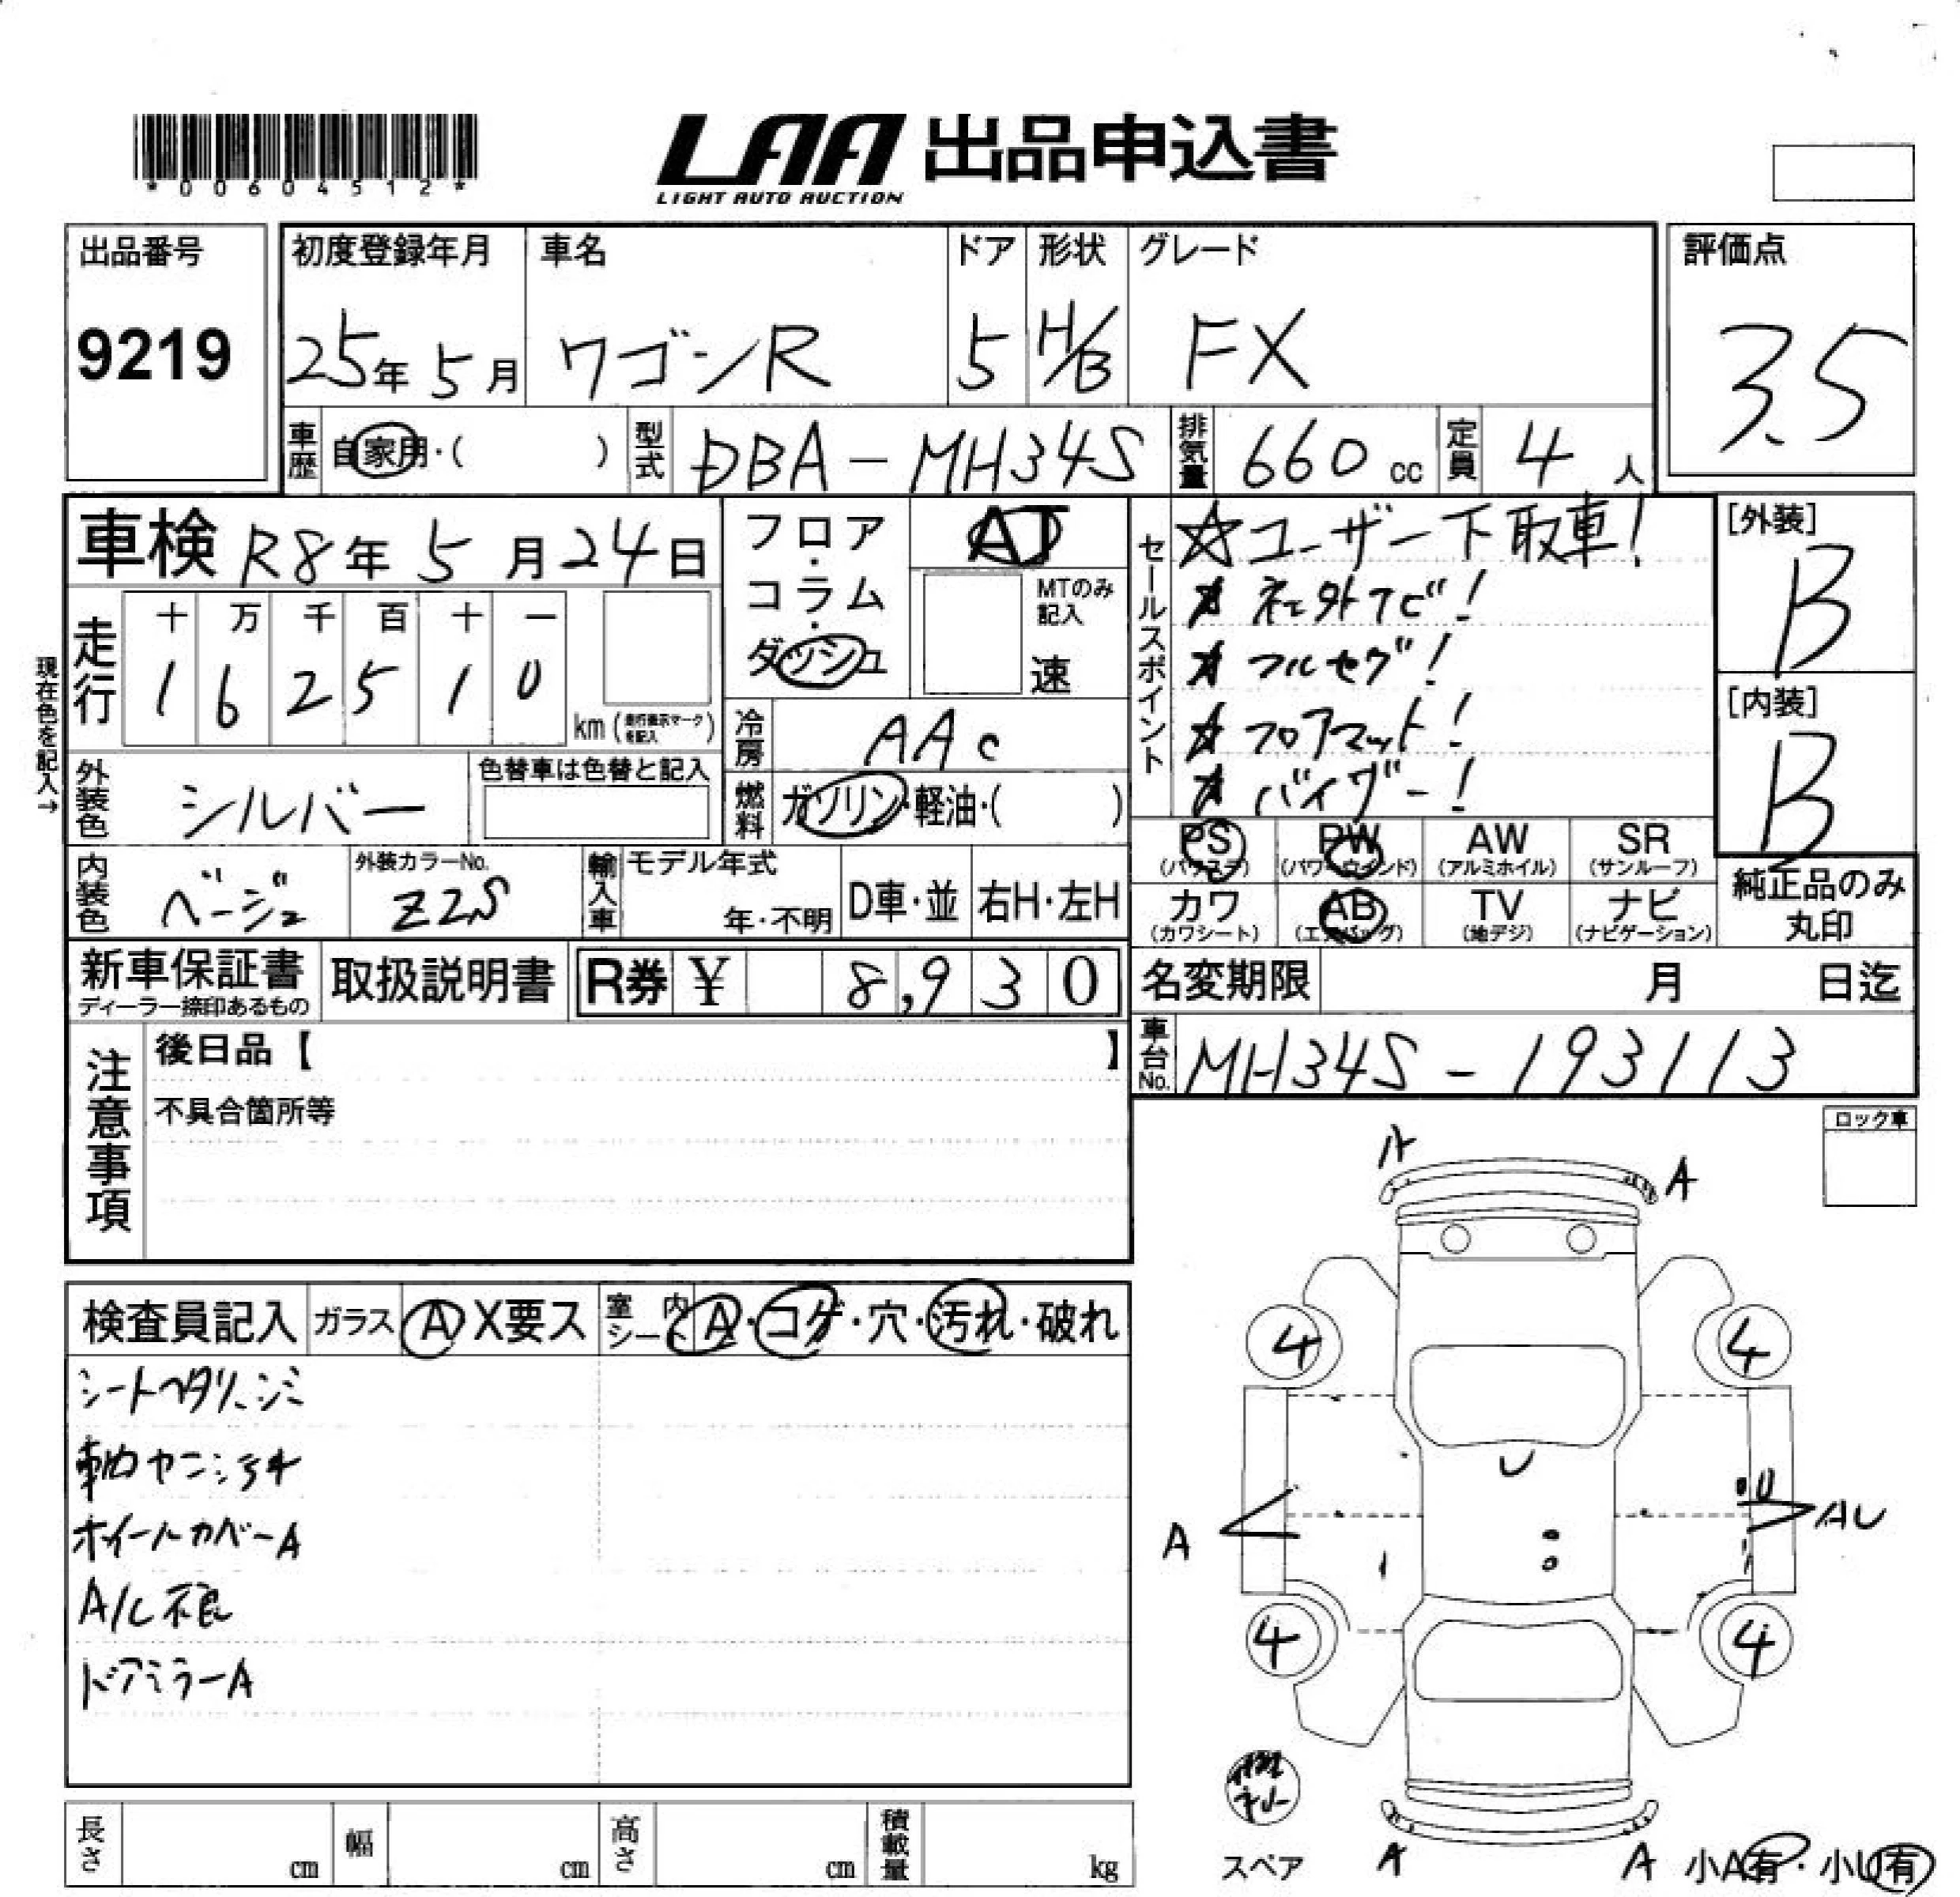 *00604512*
LAA 出品申込書
LIGHT AUTO AUCTION
出品番号
9219
初度登録年月
25年5月
車名
ワゴンR
ドア
5
形状
H/B
グレード
FX
評価点
3.5
車歴 自家用・( )
型式 DBA-MH34S
排気量 660 cc
定員 4 人
車検 R8年5月24日
フロア・コラム・ダッシュ
AT
MTのみ記入
速
セールスポイント
☆ユーザー下取車!
★社外ナビ!
★フルセグ!
★フロアマット!
★バイザー!
[外装]
B
[内装]
B
現在色を記入→
走行
十 万 千 百 十 一
1 6 2 5 1 0
km (走行表示マークを記入)
冷房 AAC
外装色 シルバー
色替車は色替と記入
燃料 ガソリン・軽油・( )
PS (パワステ)
PW (パワーウインド)
AW (アルミホイル)
SR (サンルーフ)
カワ (カワシート)
AB (エアバッグ)
TV (地デジ)
ナビ (ナビゲーション)
純正品のみ丸印
内装色 ベージュ
外装カラーNo.
Z2S
輸入車
モデル年式
年・不明
D車・並
右H・左H
新車保証書
ディーラー捺印あるもの
取扱説明書
R券 ¥ 8,930
名変期限 月 日迄
車台No. MH34S-193113
注意事項
後日品【 】
不具合箇所等
ロック車
検査員記入
ガラス A X要ス
室内シート A・コゲ・穴・汚れ・破れ
シートヘタリ、シミ
車内ヤニ
ホイールカバーA
A/C不良
ドアミラーA
A
A
4
4
U
U
A
AU
4
4
修キット
スペア
A
A
小A有・小U有
長さ cm
幅 cm
高さ cm
積載量 kg